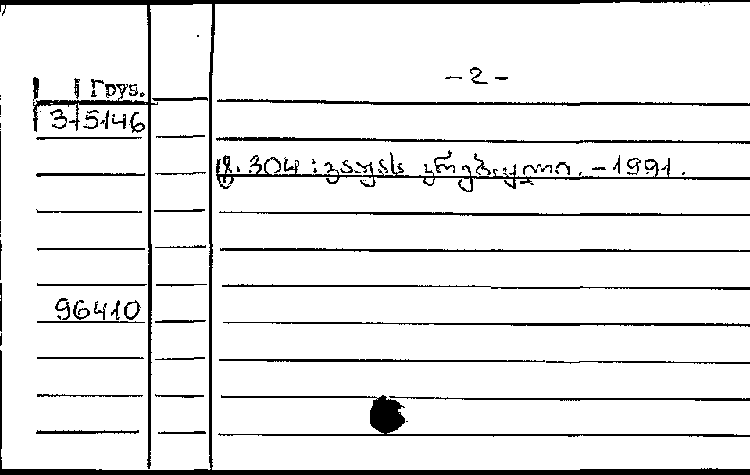 - 2 -
Груз.
3-5146
გ. 304 : ვაჟას კრებული. - 1991.
96410